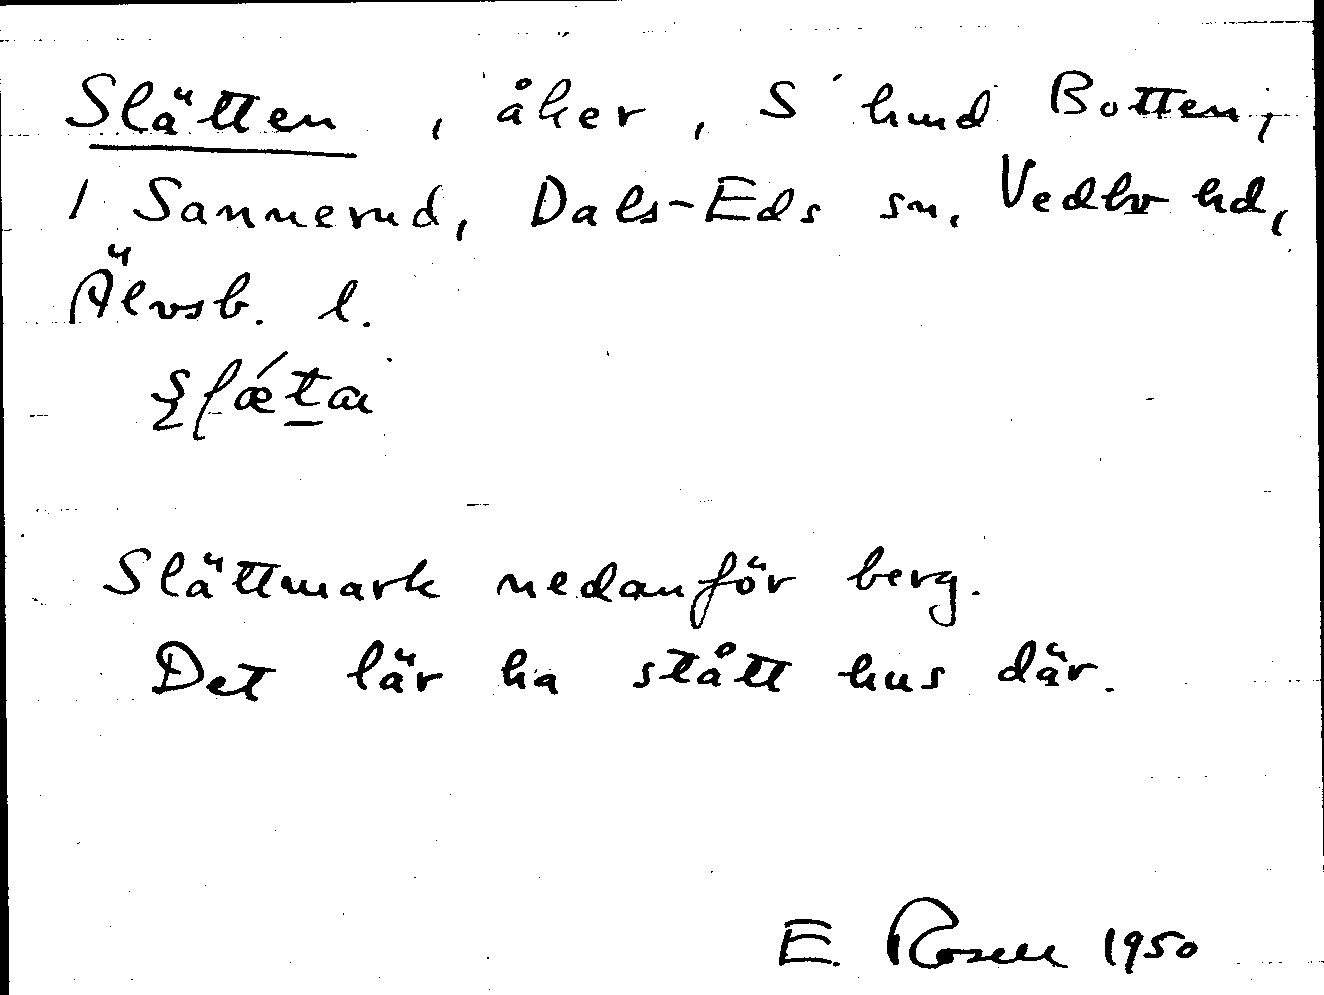 Slätten, åker, S hmd Botten,
1 Sannerud, Dals-Eds sn. Vedbo hd,
Älvsb. l.
Slättmark nedanför berg.
Det lär ha stått hus där.
E. Rosell 1950